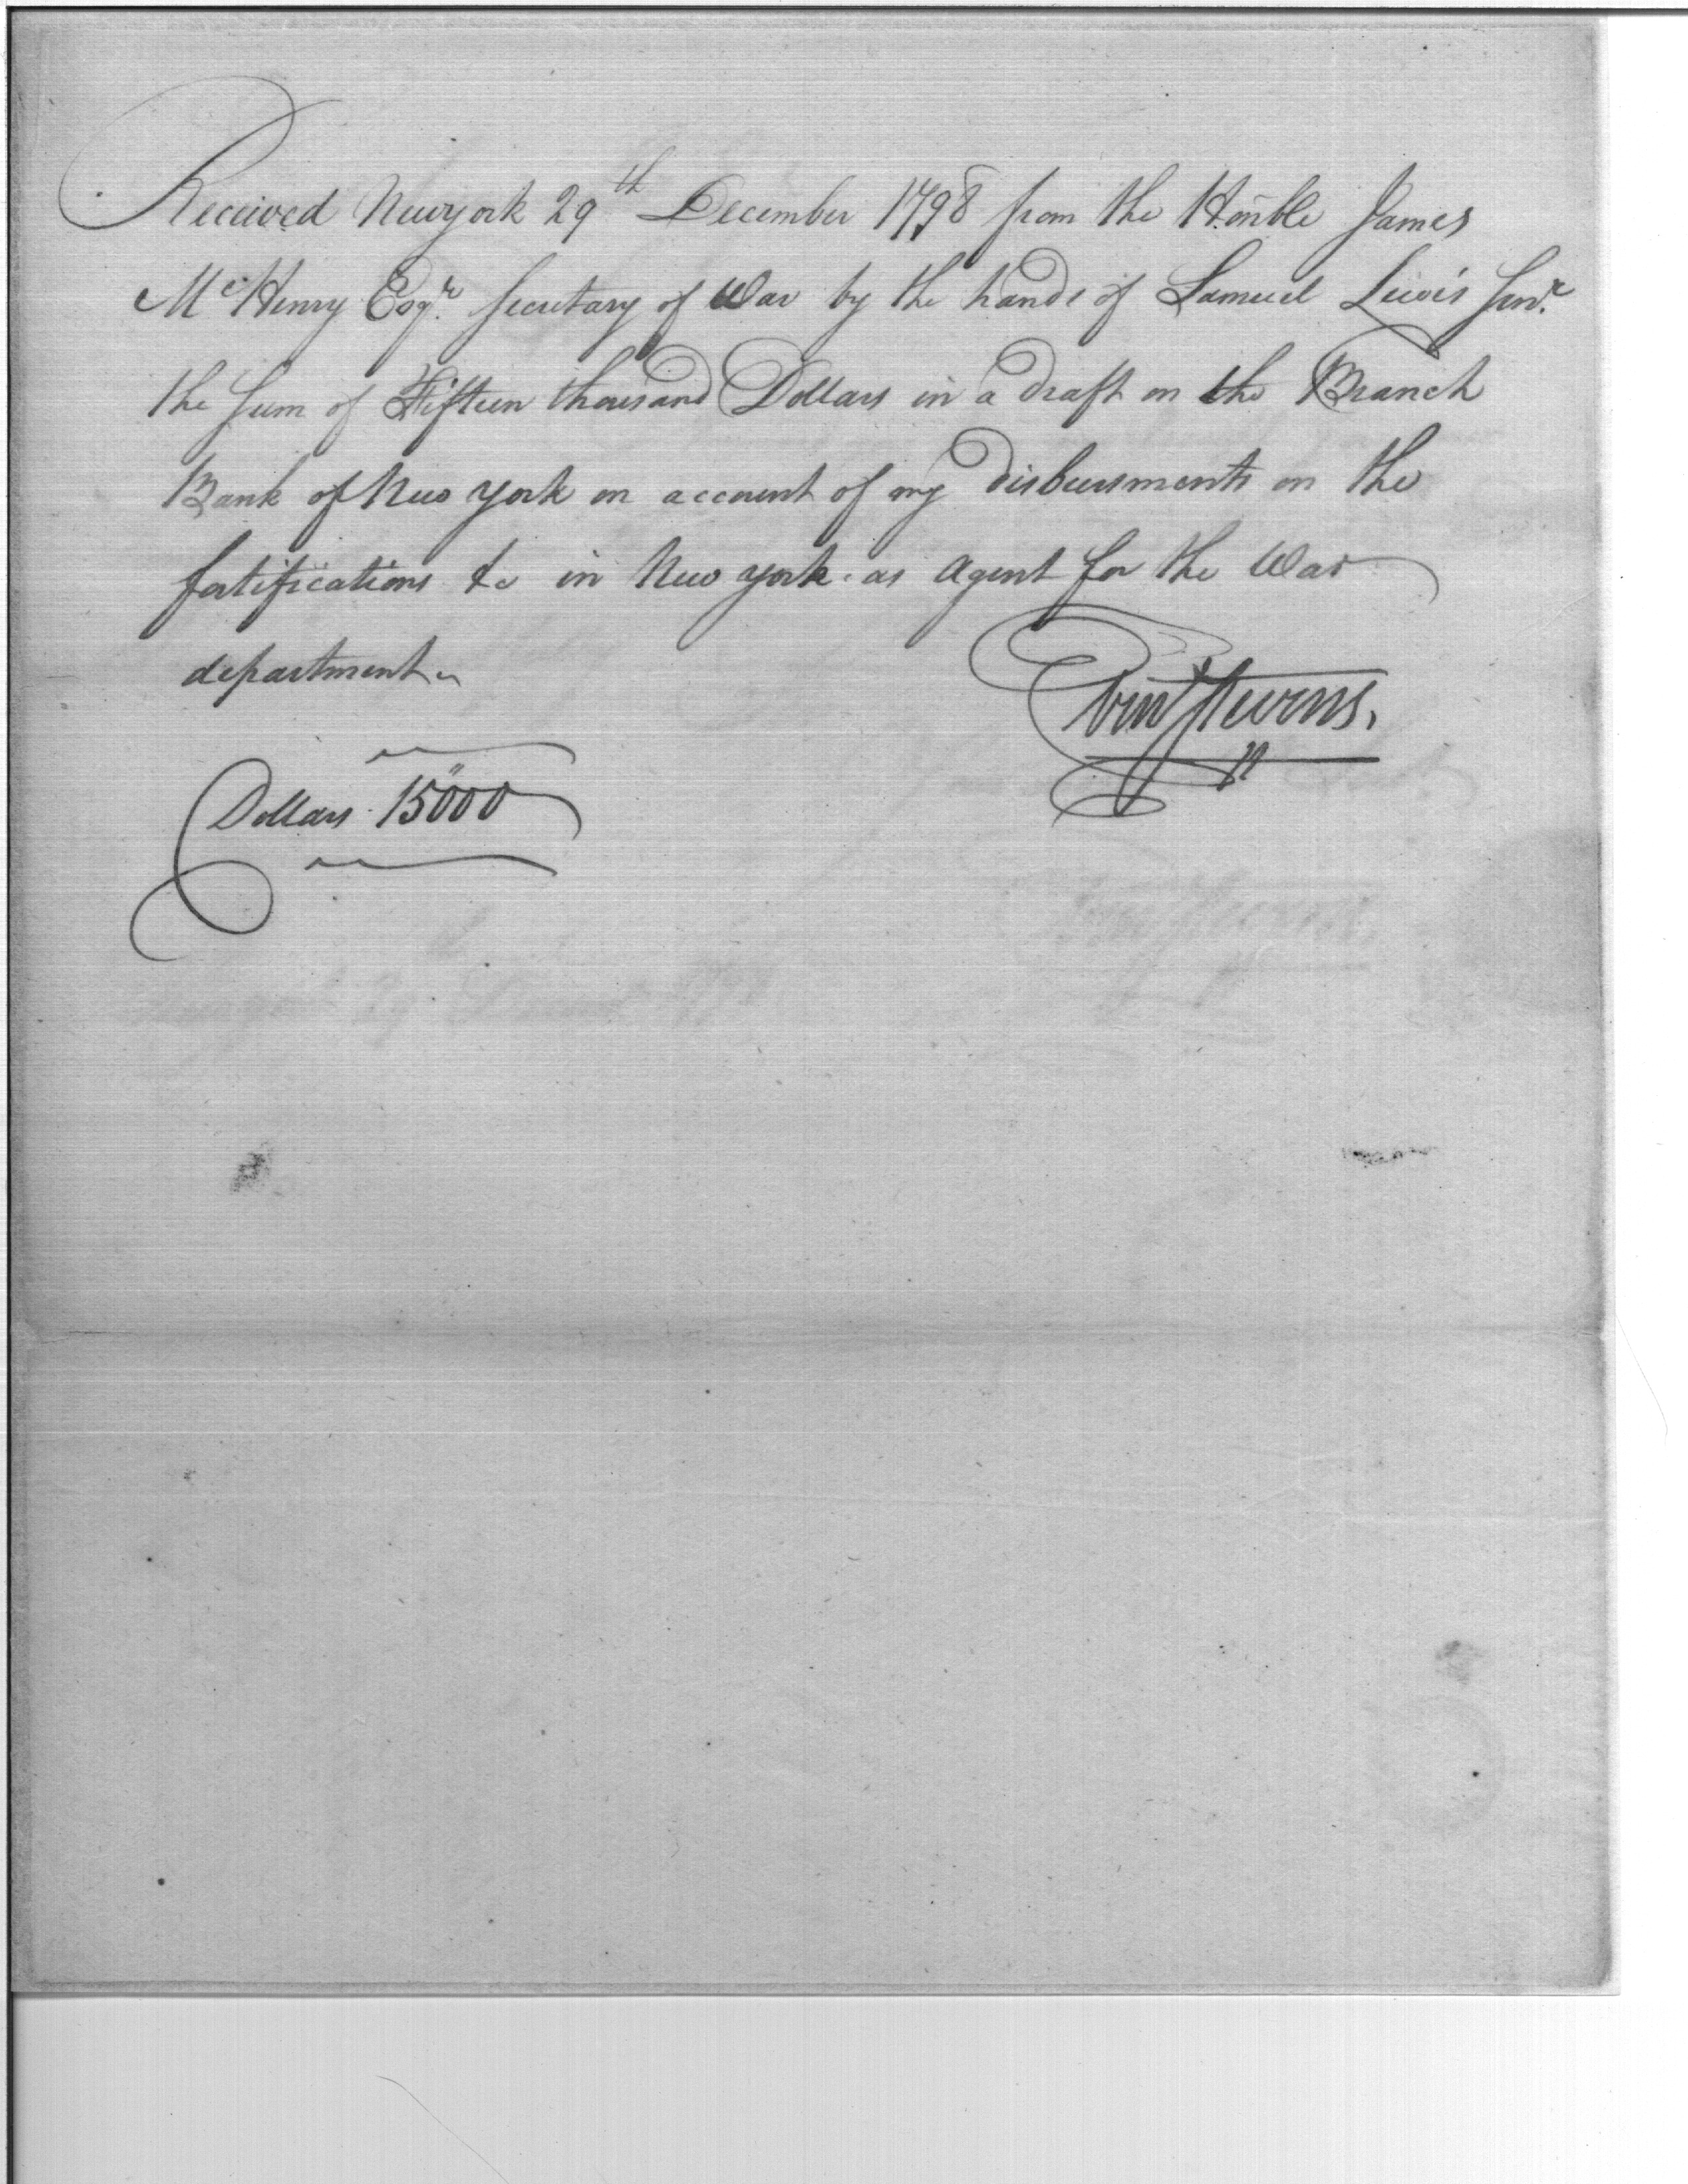 Received Newyork 29th December 1798 from the Honble James
McHenry Esqr. Secretary of War by the hands of Samuel Lewis Senr.
the Sum of Fifteen thousand Dollars in a draft on the Branch
Bank of New york on account of my disbursments on the
fortifications &c in New york as Agent for the War
department
Ebenr Stevens.
Dollars 15000